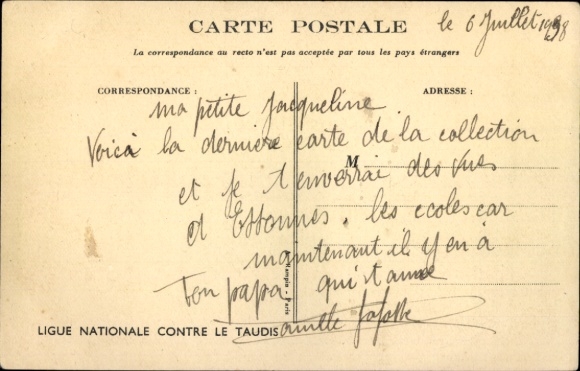 CARTE POSTALE
le 6 Juillet 1938
La correspondance au recto n'est pas acceptée par tous les pays étrangers
CORRESPONDANCE :
ADRESSE :
ma petite Jacqueline
Voica la derniere carte de la collection
M
et je t'enverrai des vues
d Essonnes. les ecoles car
maintenant il y en à
Ton papa qui t'aime
LIGUE NATIONALE CONTRE LE TAUDIS